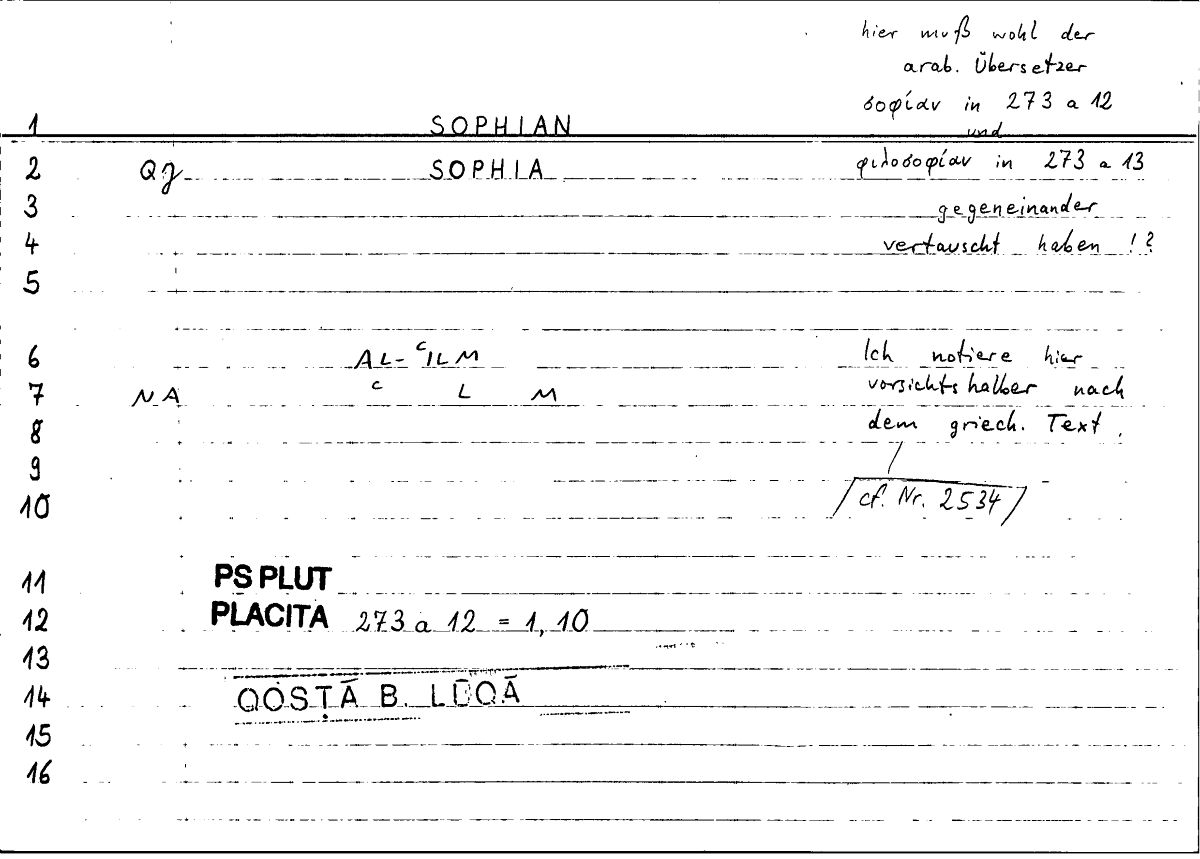 hier muß wohl der
arab. Übersetzer
σοφίαν in 273 a 12
und
1 SOPHIAN
2 Qg SOPHIA φιλοσοφίαν in 273 a 13
3 gegeneinander
4 vertauscht haben !?
5
6 AL-ᶜILM Ich notiere hier
7 NA ᶜ L M vorsichtshalber nach
8 dem griech. Text.
9
10 /cf. Nr. 2534/
11 PS PLUT
12 PLACITA 273 a 12 = 1, 10
13
14 QOSṬĀ B. LŪQĀ
15
16